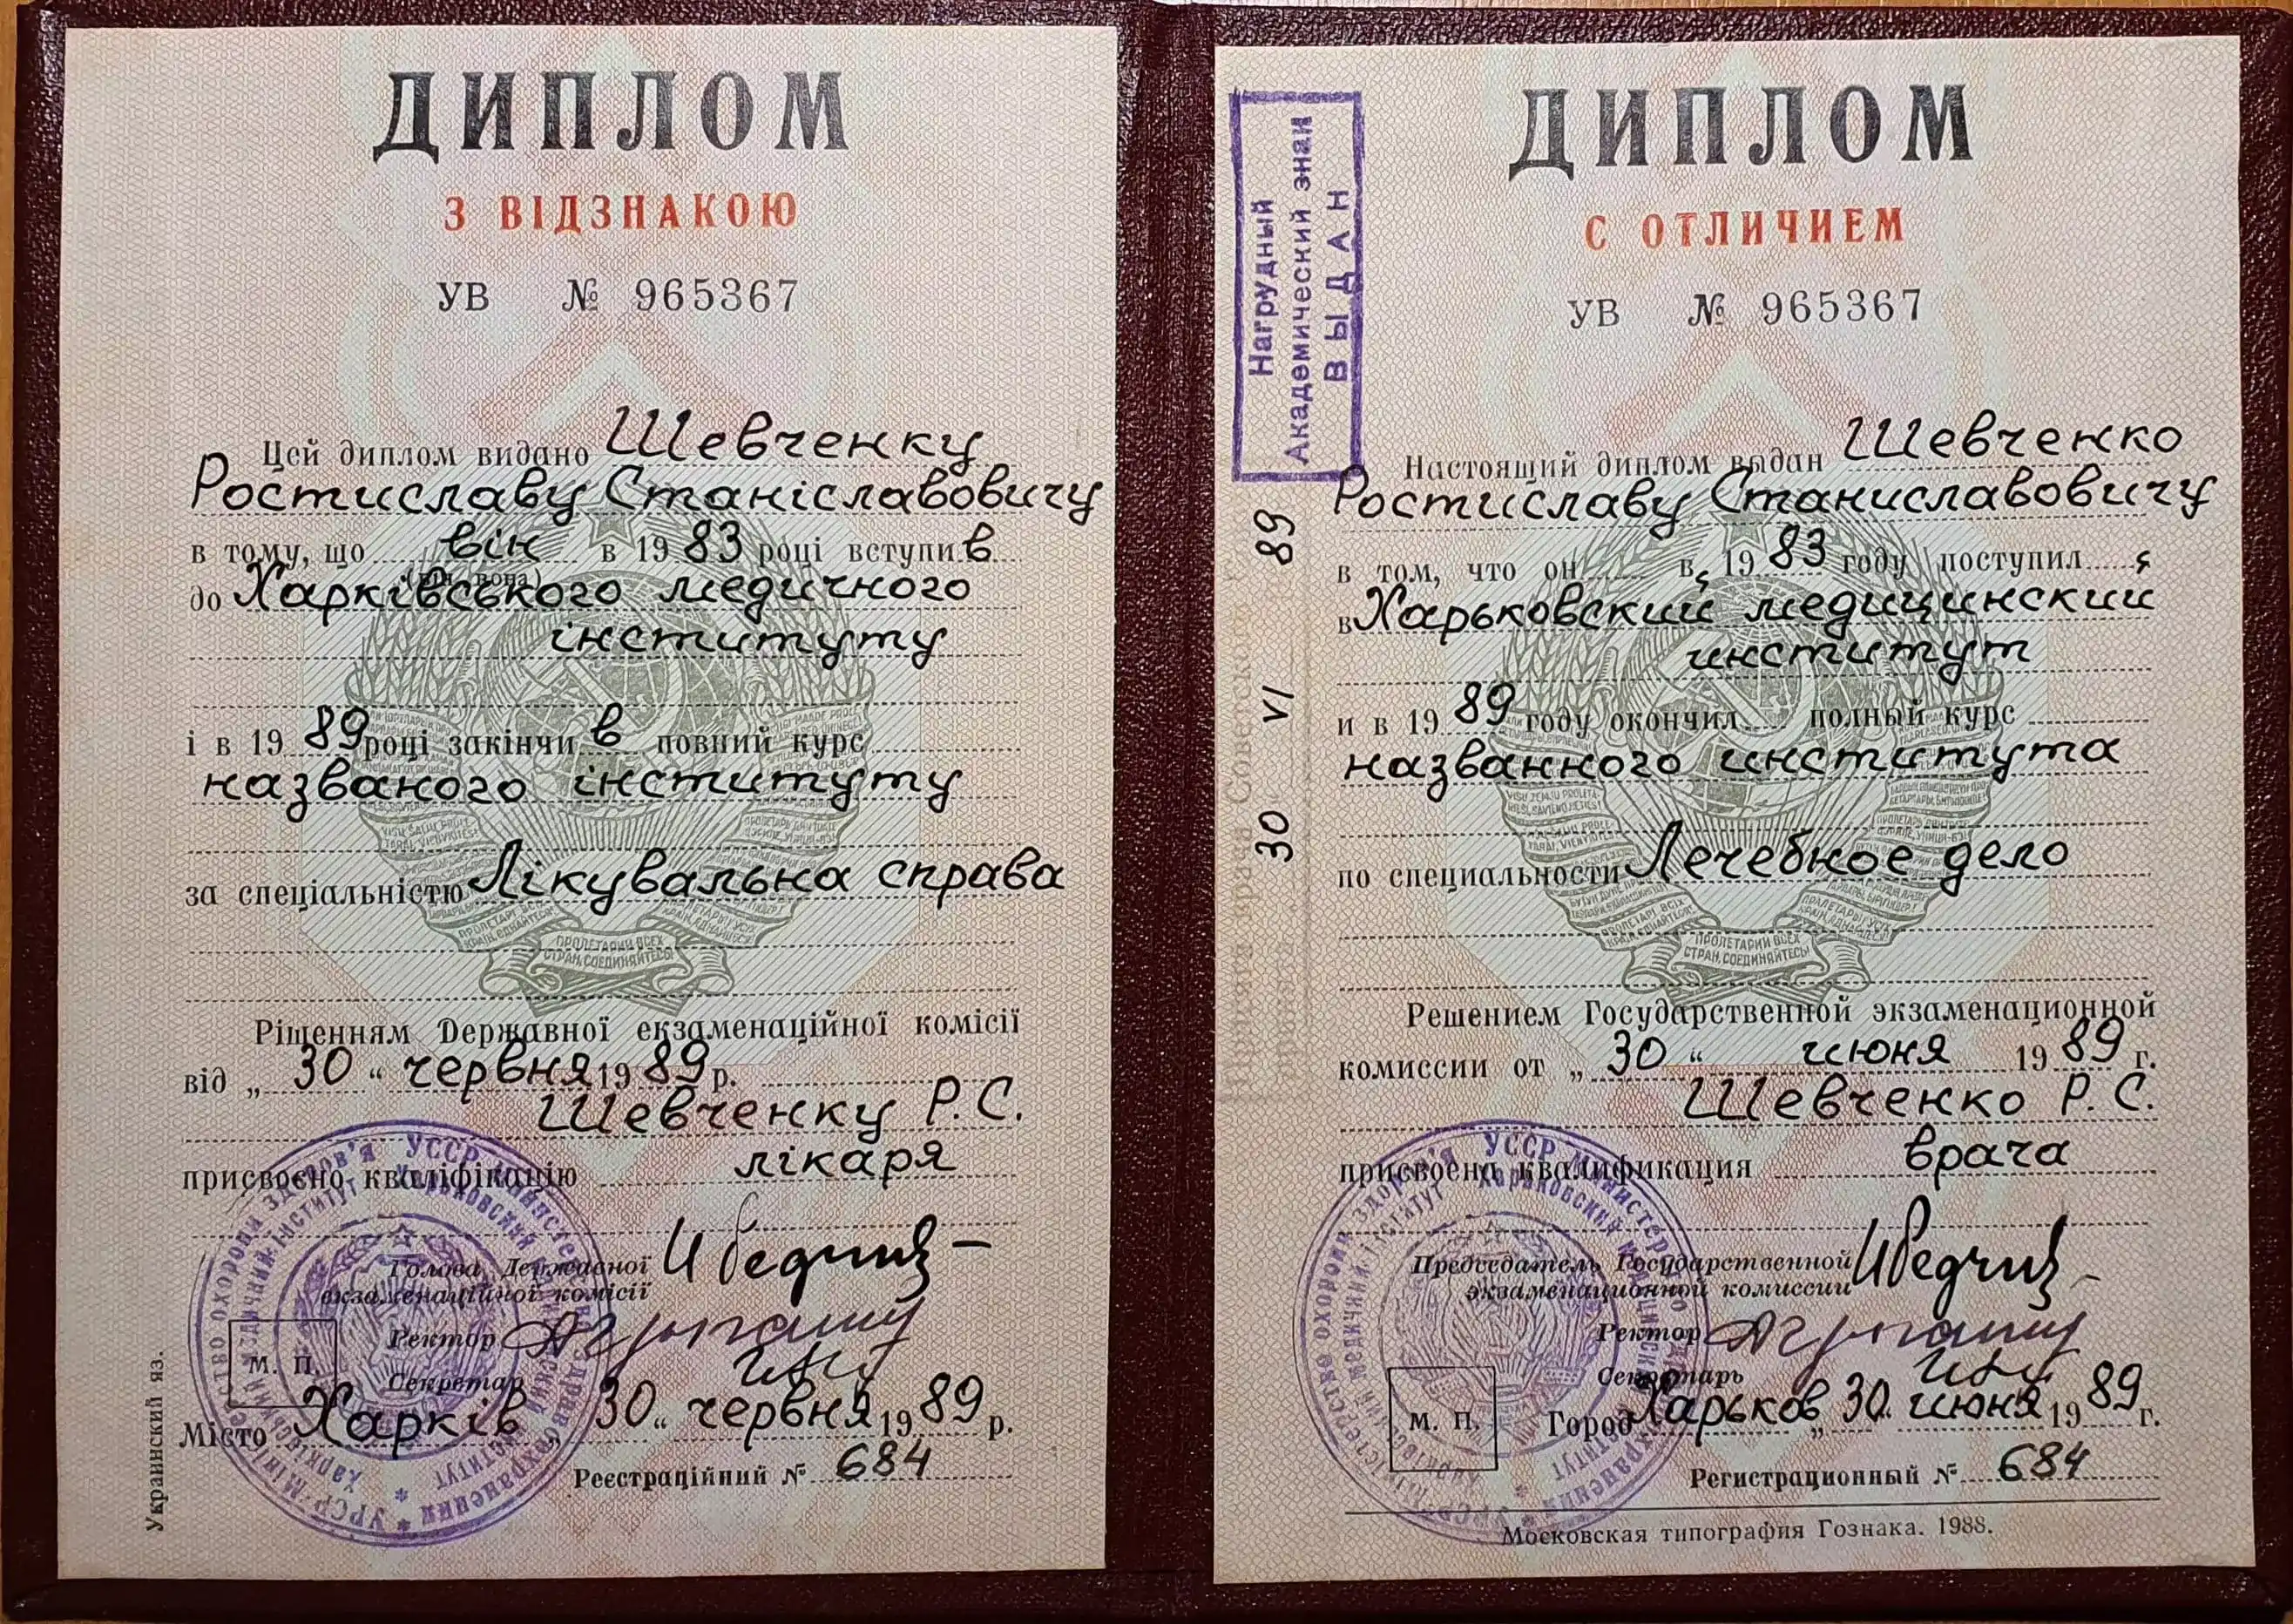 ДИПЛОМ
З ВІДЗНАКОЮ
УВ № 965367
Цей диплом видано Шевченку
Ростиславу Станіславовичу
в тому, що він в 1983 році вступив
(він, вона)
до Харківського медичного
інституту
і в 1989 році закінчив повний курс
названого інституту
за спеціальністю Лікувальна справа
ПРОЛЕТАРИИ ВСЕХ
СТРАН, СОЕДИНЯЙТЕСЬ!
Рішенням Державної екзаменаційної комісії
від „30“ червня 1989 р.
Шевченку Р.С.
присвоєно кваліфікацію лікаря
Голова Державної
екзаменаційної комісії
Ректор
Секретар
М. П.
Місто Харків „30“ червня 1989 р.
Реєстраційний № 684
Украинский яз.
ДИПЛОМ
С ОТЛИЧИЕМ
УВ № 965367
Нагрудный
Академический знак
ВЫДАН
30 VI 89
Настоящий диплом выдан Шевченко
Ростиславу Станиславовичу
в том, что он в 1983 году поступил
в Харьковский медицинский
институт
и в 1989 году окончил полный курс
названного института
по специальности Лечебное дело
ПРОЛЕТАРИИ ВСЕХ
СТРАН, СОЕДИНЯЙТЕСЬ!
Решением Государственной экзаменационной
комиссии от „30“ июня 1989 г.
Шевченко Р.С.
присвоена квалификация врача
Председатель Государственной
экзаменационной комиссии
Ректор
Секретарь
М. П.
Город Харьков „30“ июня 1989 г.
Регистрационный № 684
Московская типография Гознака. 1988.